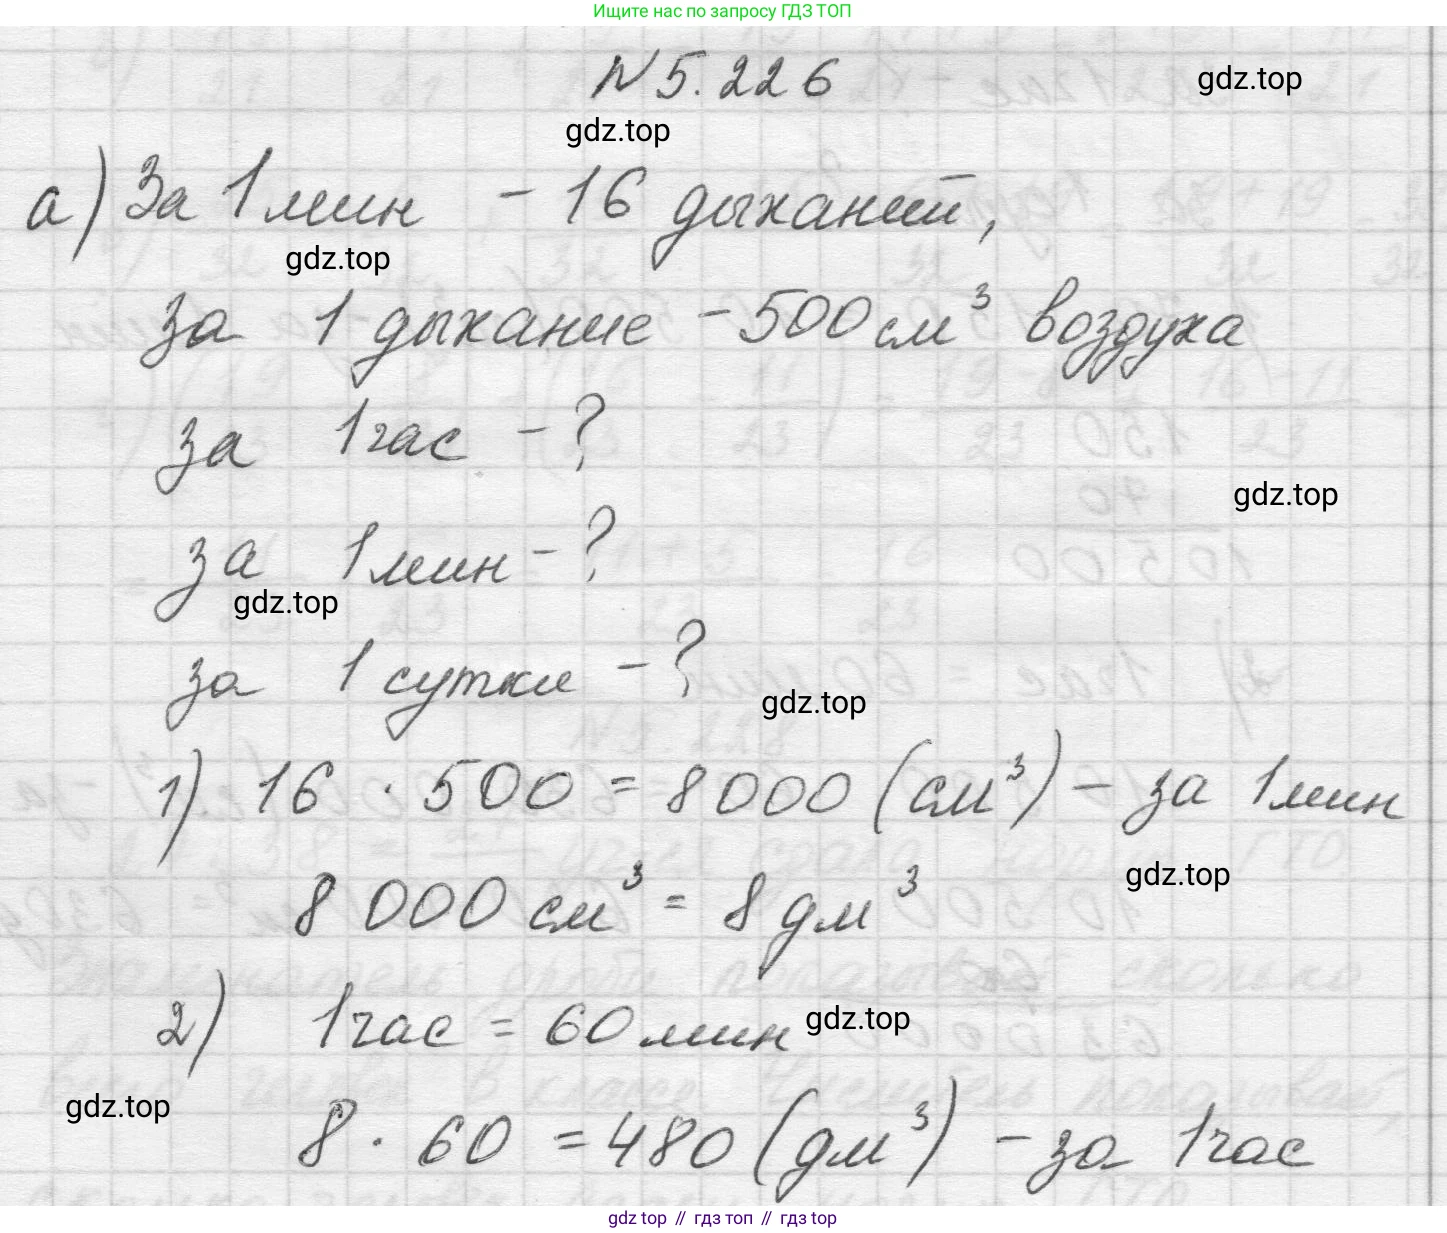 Ищите нас по запросу ГДЗ ТОП
№ 5.226
gdz.top
gdz.top
а) За 1 мин - 16 дыханий,
gdz.top
за 1 дыхание - 500 см³ воздуха
за 1 час - ?
gdz.top
за 1 мин - ?
gdz.top
за 1 сутки - ?
gdz.top
1) 16 · 500 = 8000 (см³) - за 1 мин
gdz.top
8 000 см³ = 8 дм³
2) 1 час = 60 мин
gdz.top
gdz.top
8 · 60 = 480 (дм³) - за 1 час
gdz top // гдз топ // гдз top